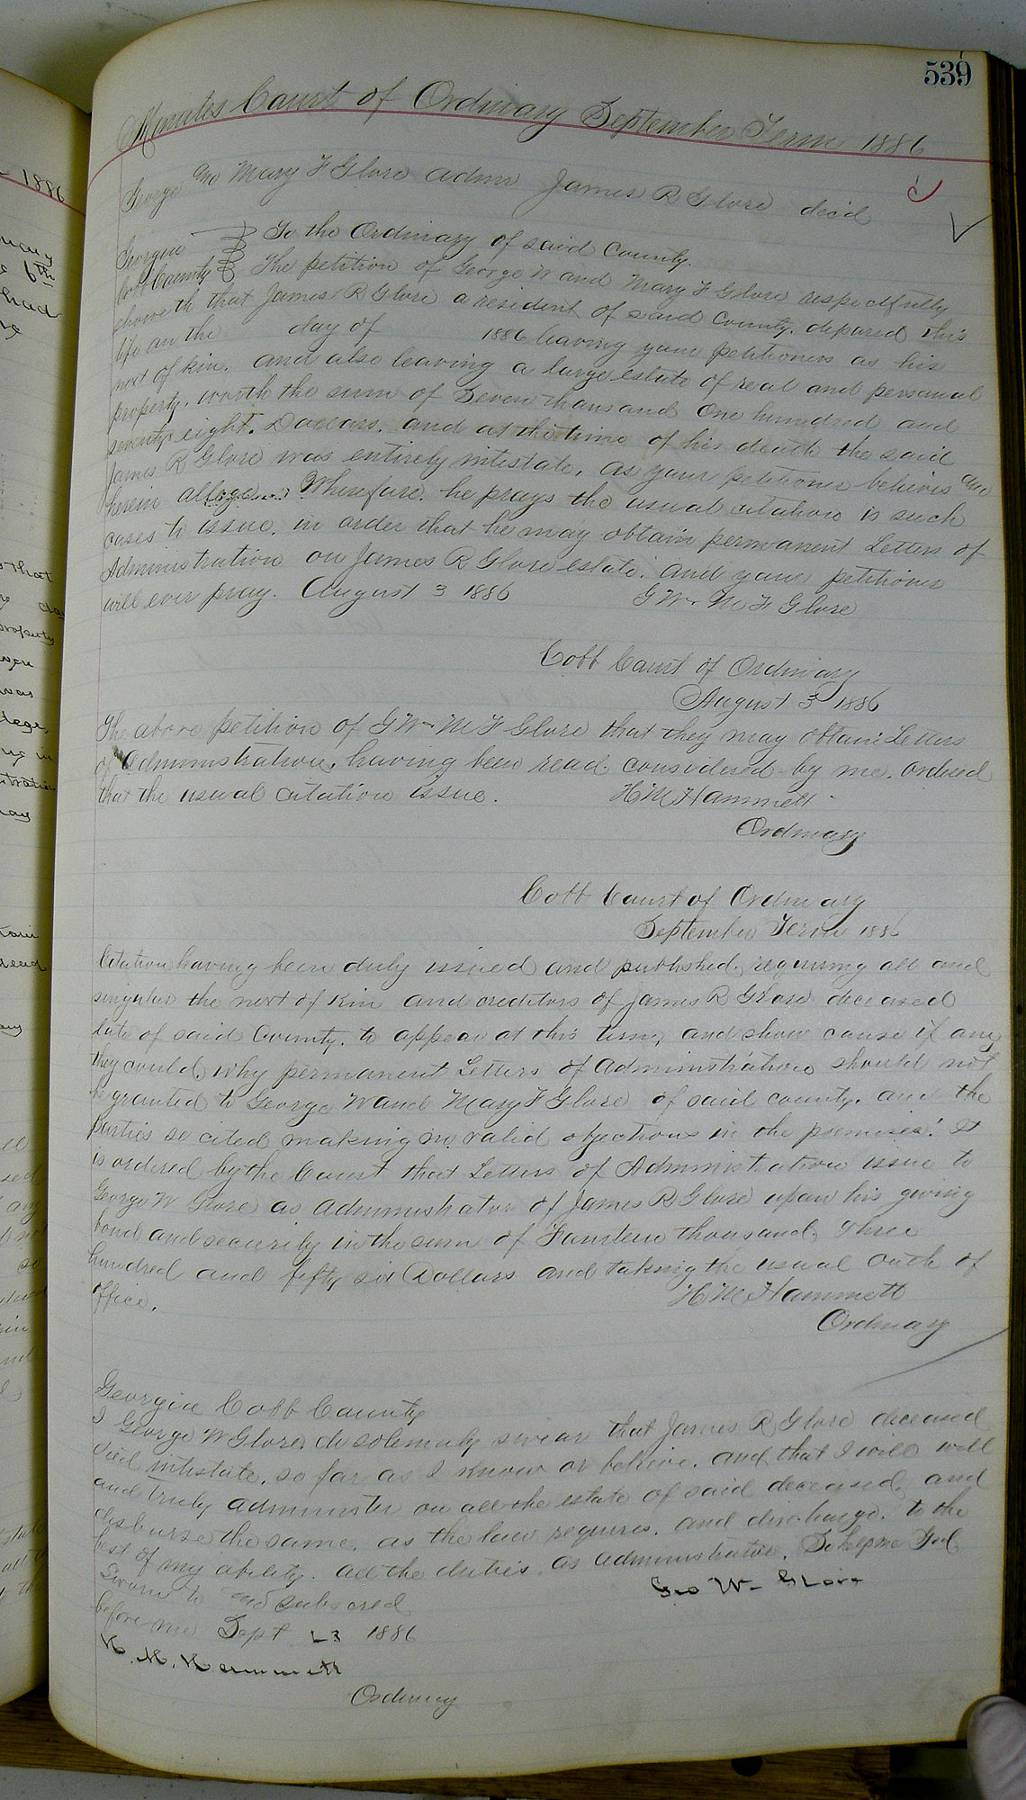 539
Minutes Court of Ordinary September Term 1886
George and Mary F Glore admr James R Glore decd
Georgia To the Ordinary of said County.
Cobb County The petition of George W and Mary F Glore respectfully
showeth that James R Glore a resident of said County. departed this
life on the day of 1886 leaving your petitioners as his
next of kin. and also leaving a large estate of real and personal
property. worth the sum of Seven thousand One hundred and
seventy eight. Dollars. and at the time of his death the said
James R Glore was entirely intestate, as your petitioner believes and
herein alleges. Wherefore. he prays the usual citation in such
cases to issue. in order that he may obtain permanent Letters of
Administration on James R Glore estate. and your petitioner
will ever pray. August 3 1886 G W - M F Glore
Cobb Court of Ordinary
August 3 1886
The above petition of G W - M F Glore that they may obtain Letters
of Administration, having been read considered by me. Ordered
that the usual citation issue. H M Hammett
Ordinary
Cobb Court of Ordinary
September Term 1886
Citation having been duly issued and published. requiring all and
singular the next of kin and creditors of James R Glore deceased
late of said County. to appear at this term, and show cause if any
they could, why permanent Letters of administration should not
be granted to George W and Mary F Glore of said county. and the
parties so cited making no valid objections in the premises. It
is ordered by the Court that Letters of Administration issue to
George W Glore as administrator of James R Glore upon his giving
bond and security in the sum of Fourteen thousand, Three
hundred and fifty six Dollars and taking the usual oath of
office. H M Hammett
Ordinary
Georgia Cobb County
I George W Glore do solemnly swear that James R Glore deceased
died intestate, so far as I know or believe. and that I will well
and truly administer on all the estate of said deceased, and
disburse the same. as the law requires. and discharge. to the
best of my ability. all the duties. as administrator. So help me God
Sworn to and subscred Geo W - Glore
before me Sept 23 1886
H. M. Hammett
Ordinary